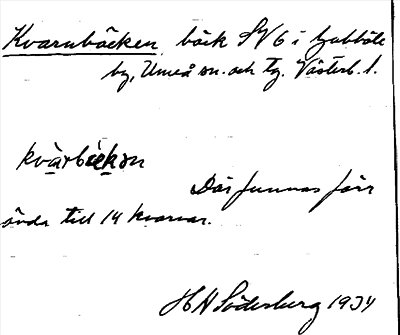 Kvarnbäcken, bäck SV 6 i Gubböle
by, Umeå sn. och tg. Västerb. l.
kvàrbèkɘn
Där funnos förr
ända till 14 kvarnar.
H N Söderberg 1934